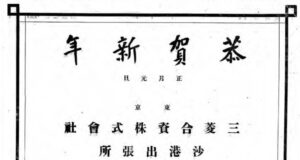 恭賀新年
正月元旦
東京
三菱合資株式會社
沙港出張所